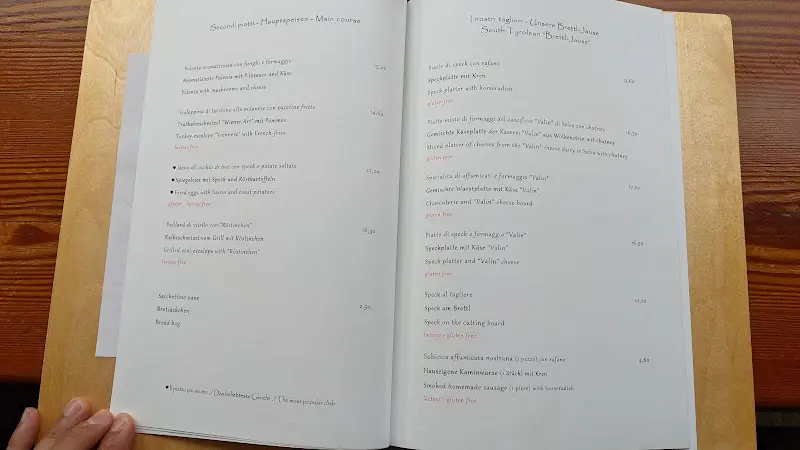 Secondi piatti - Hauptspeisen - Main course
Polenta aromatizzata con funghi e formaggio
Aromatisierte Polenta mit Pilzsauce und Käse
Polenta with mushrooms and cheese
Scaloppina di tacchino alla milanese con patatine fritte
14,60
Truthahnschnitzel "Wiener Art" mit Pommes
Turkey-escalope "viennese" with French-fries
lactose free
♥ Uova all'occhio di bue con speck e patate saltate
♥ Spiegeleier mit Speck und Röstkartoffeln
♥ Fried eggs with bacon and roast potatoes
gluten - lactose free
Paillard di vitello con "Röstinchen"
16,50
Kalbsschnitzel vom Grill mit Röstinchen
Grilled veal escalope with "Röstinchen"
lactose free
Sacchettino pane
Brotsäckchen
2,50
Bread bag
♥ Il piatto più amato / Das beliebteste Gericht / The most popular dish
I nostri taglieri - Unsere Brettl-Jause
South Tyrolean "Brettl-Jause"
Piatto di speck con rafano
Speckplatte mit Kren
Speck platter with horseradish
gluten free
Piatto misto di formaggi del caseificio "Valin" di Selva con chutney
Gemischte Käseplatte der Käserei "Valin" aus Wolkenstein mit chutney
16,50
Mixed platter of cheeses from the "Valin" cheese dairy in Selva with chutney
gluten free
Specialità di affumicati e formaggio "Valin"
Gemischte Wurstplatte mit Käse "Valin"
17,00
Charcuterie and "Valin" cheese board
gluten free
Piatto di speck e formaggio "Valin"
Speckplatte mit Käse "Valin"
16,50
Speck platter and "Valin" cheese
gluten free
Speck al tagliere
Speck am Brettl
Speck on the cutting board
lactose - gluten free
Salsiccia affumicata nostrana (1 pezzo) con rafano
4,60
Hauseigene Kaminwurze (1 Stück) mit Kren
Smoked homemade sausage (1 piece) with horseradish
lactose - gluten free